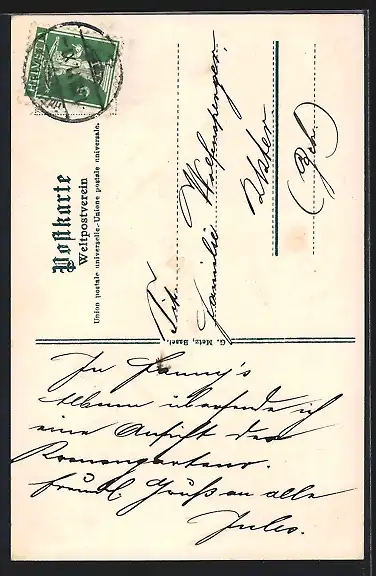 HELVETIA
Postkarte
Weltpostverein
Union postale universelle.-Unione postale universale.
Tit.
Familie Wolfensperger,
Uster
(Zch.)
G. Metz, Basel.
In Fanny's
Album übersende ich
eine Ansicht des
Rosengartens.
freundl Gruß an alle
Jules.